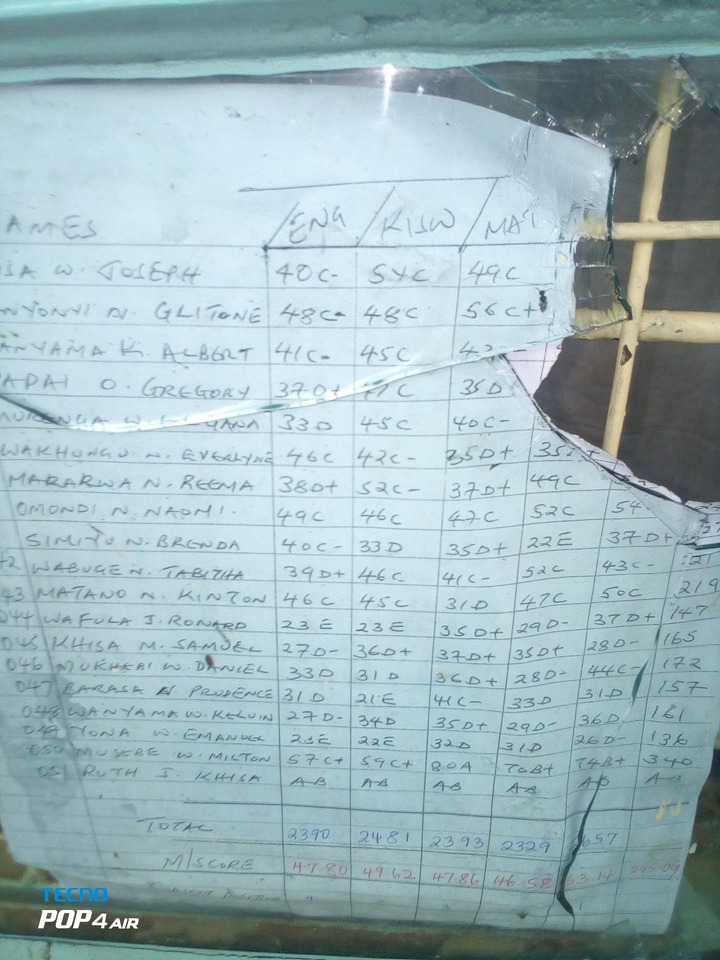 AMES ENG KISW MAT
SA W. JOSEPH 40C- 54C 49C
NYONYI N. GLITONE 48C- 48C 56C+
ANYAMA K. ALBERT 41C- 45C
APAI O. GREGORY 37D+ 35D
33D 45C 40C-
WAKHUNGU N. EVERLYNE 46C 42C- 35D+
MARARWA N. REEMA 38D+ 52C- 37D+ 49C
OMONDI N. NAOMI. 49C 46C 47C 52C 54
SIMIYU N. BRENDA 40C- 33D 35D+ 22E 37D+
42 WABUGE N. TABITHA 39D+ 46C 41C- 52C 43C- 221
43 MATANO N. KINTON 46C 45C 31D 47C 50C 219
044 WAFULA J. RONARD 23E 23E 35D+ 29D- 37D+ 147
045 KHISA M. SAMUEL 27D- 36D+ 37D+ 35D+ 28D- 165
046 MUKHEBI W. DANIEL 33D 31D 36D+ 28D- 44C- 172
047 BARASA N PRUDENCE 31D 21E 41C- 33D 31D 157
048 WANYAMA W. KELVIN 27D- 34D 35D+ 29D- 36D 161
049 YONA W. EMANUEL 23E 22E 32D 31D 26D- 136
050 MUSEBE W. MILTON 57C+ 59C+ 80A 70B+ 74B+ 340
051 RUTH J. KHISA AB AB AB AB AB AB
TOTAL 2390 2481 2393 2329 657
M/SCORE 47.80 49.62 47.86 46.58 53.14
TECNO
POP 4 AIR